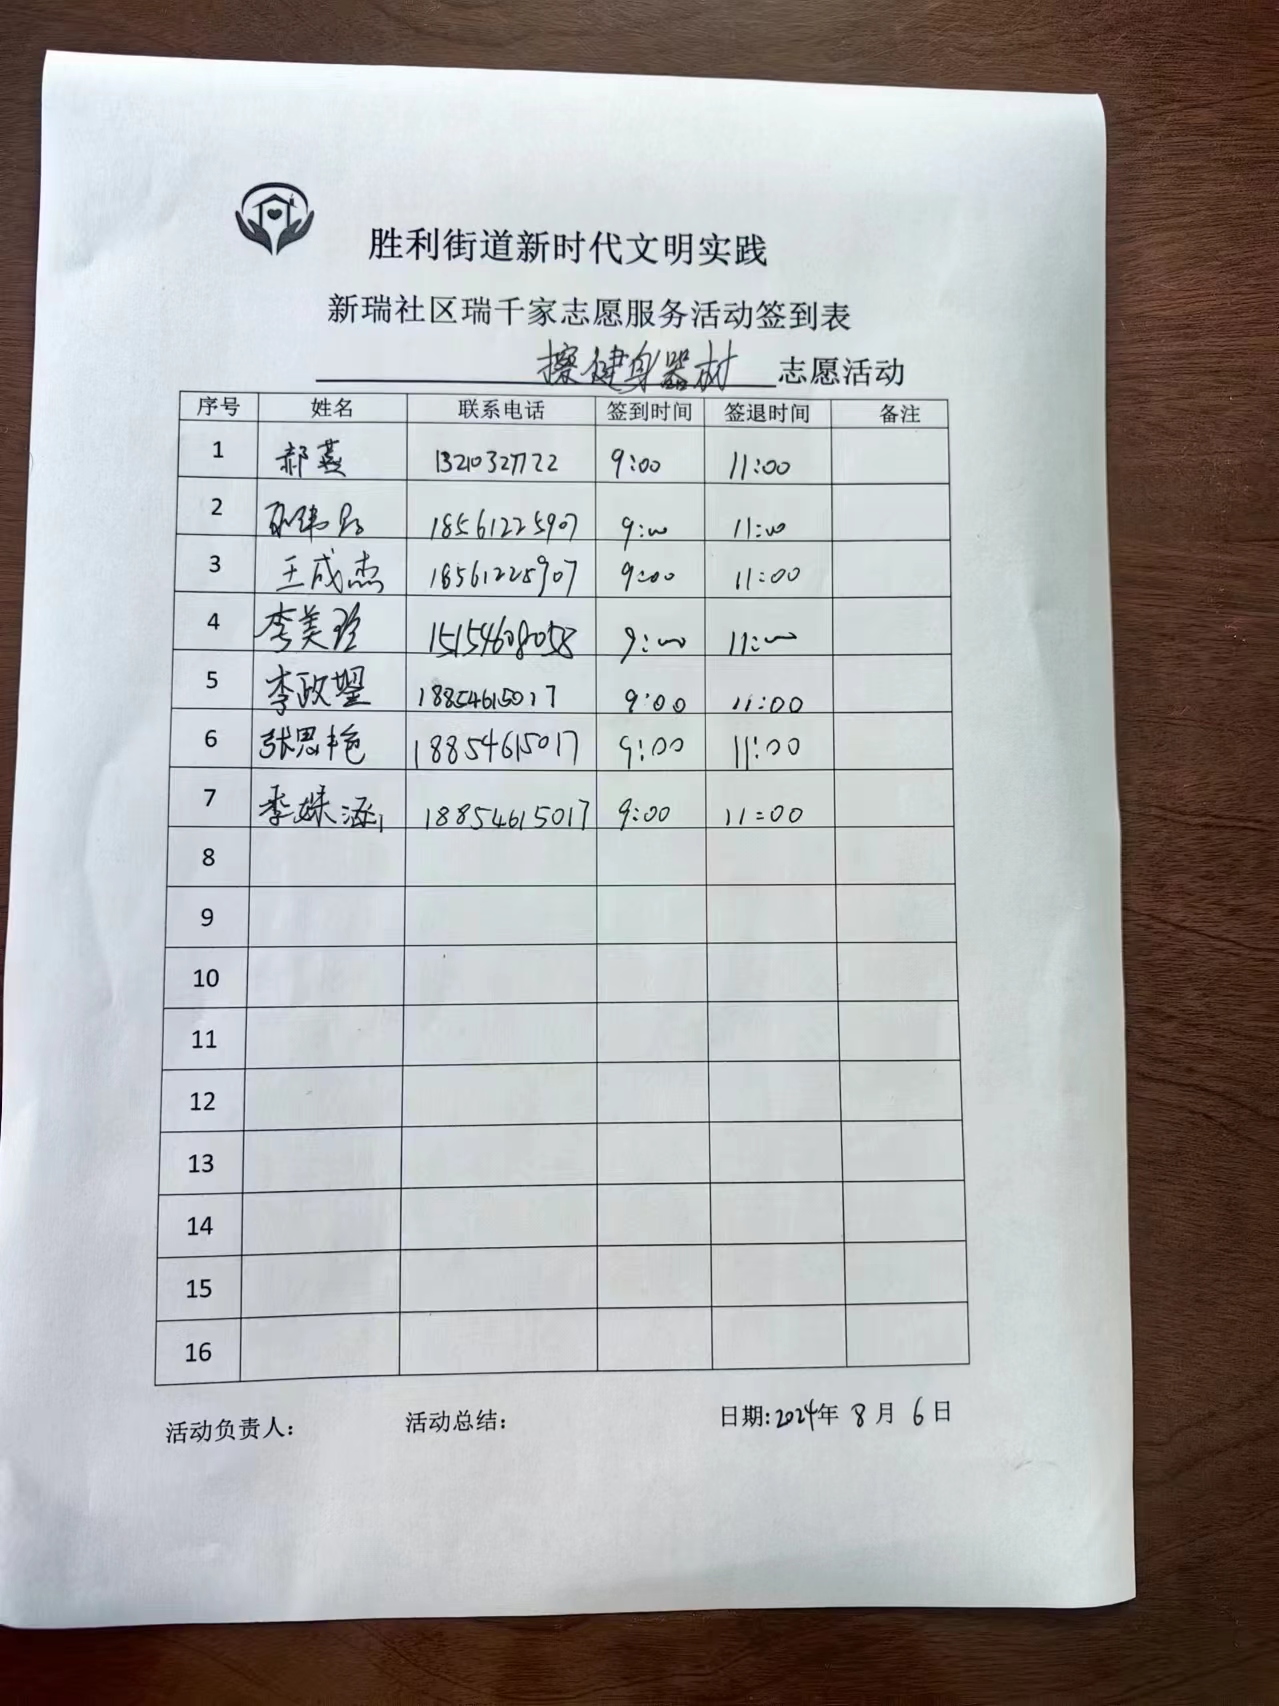 胜利街道新时代文明实践
新瑞社区瑞千家志愿服务活动签到表
擦健身器材 志愿活动
序号 姓名 联系电话 签到时间 签退时间 备注
1 郝燕 13210327722 9:00 11:00
2 18561225907 9:00 11:00
3 王成杰 18561225907 9:00 11:00
4 李美玲 15154608058 9:00 11:00
5 李政 18854615017 9:00 11:00
6 张思艳 18854615017 9:00 11:00
7 李姝涵 18854615017 9:00 11:00
8
9
10
11
12
13
14
15
16
活动负责人: 活动总结: 日期:2024年 8月 6日